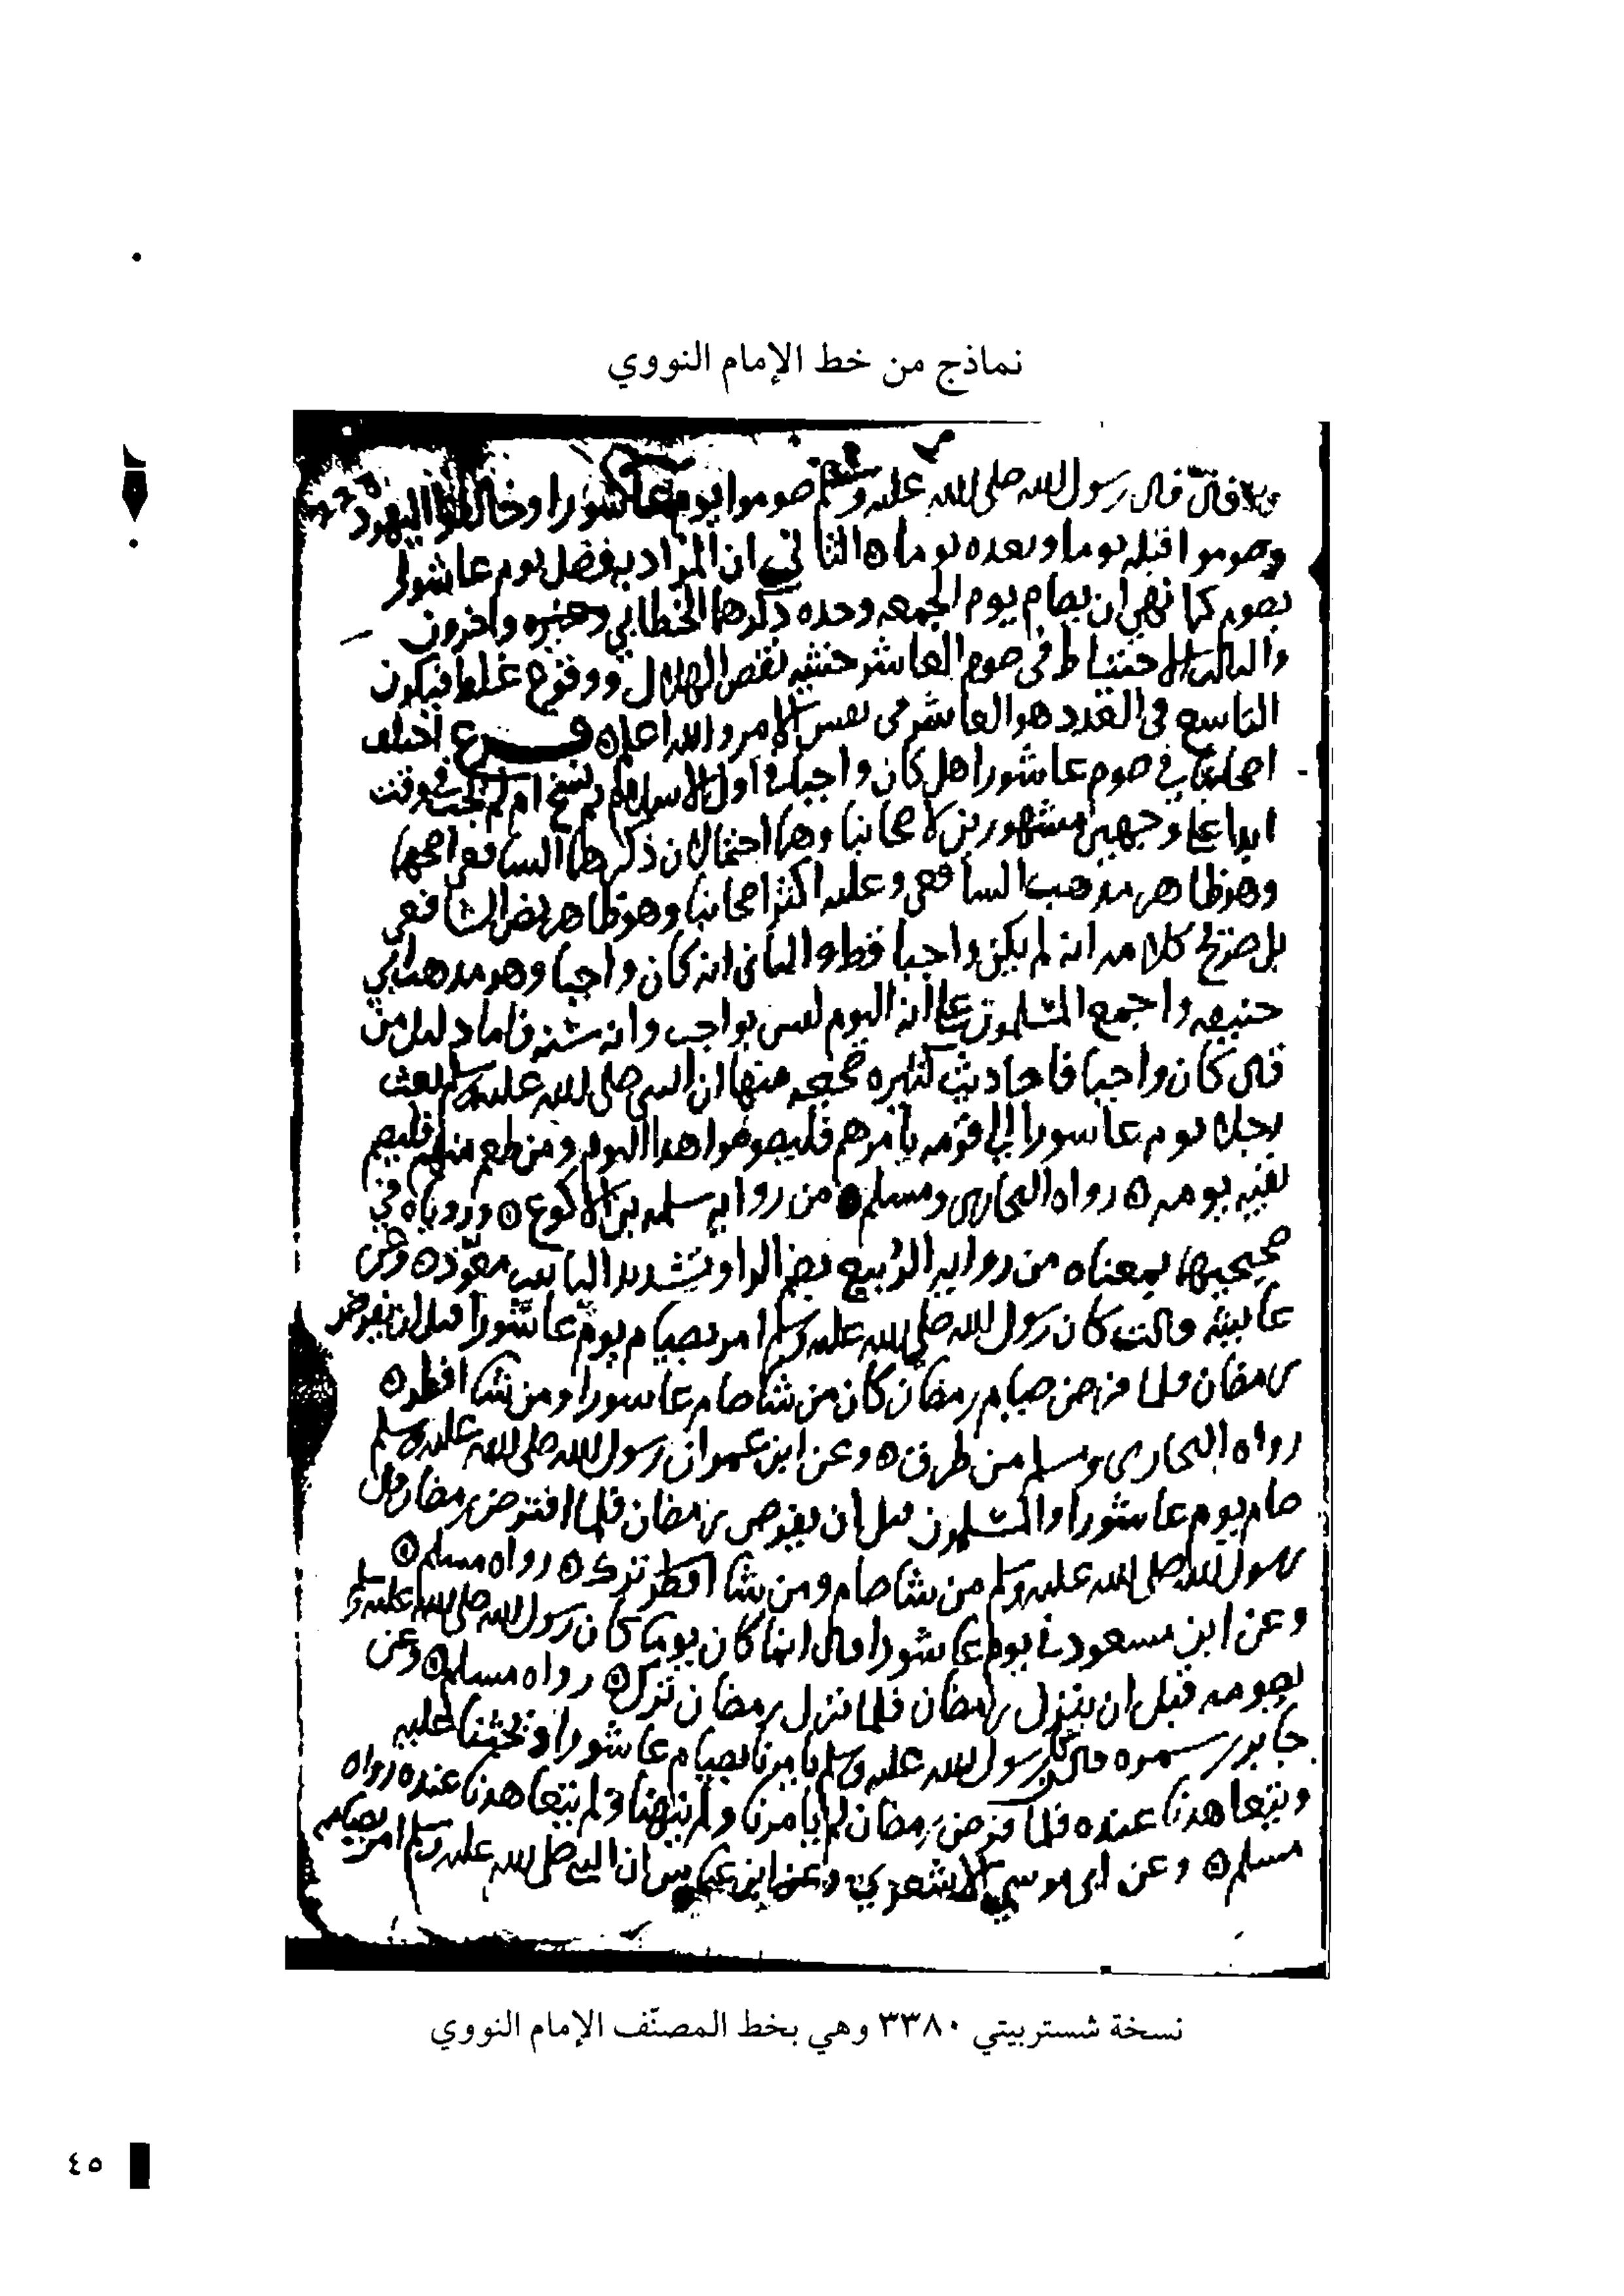 نماذج من خط الإمام النووي
قال قال رسول الله صلى الله عليه وسلم صوموا يوم عاشورا وخالفوا اليهود
وصوموا قبله يوما وبعده يوما ه الثاني ان المراد به فصل يوم عاشورا
بصوم كما نهي ان يصام يوم الجمعه وحده ذكرهما الخطابي وآخرون
والثالث الاحتياط في صوم العاشر خشيه نقص الهلال ووقوع غلط فيكون
التاسع في العدد هو العاشر في نفس الامر والله اعلم ه فرع اختلف
اصحابنا في صوم عاشورا هل كان واجبا في اول الاسلام ثم نسخ ام لم يجب في وقت
ابدا على وجهين مشهورين لاصحابنا وهما احتمالان ذكرهما الشافعي اصحهما
وهو ظاهر مذهب الشافعي وعليه اكثر اصحابنا وهو ظاهر نص الشافعي
بل صريح كلامه انه لم يكن واجبا قط والثاني انه كان واجبا وهو مذهب ابي
حنيفه واجمع المسلمون على انه اليوم ليس بواجب وانه سنه فاما دليل من
قال كان واجبا فاحاديث كثيره صحيحه منها ان النبي صلى الله عليه وسلم بعث
رجلا يوم عاشورا الى قومه يأمرهم فليصوموا هذا اليوم ومن طعم منهم فليصم
بقيه يومه ه رواه البخاري ومسلم من روايه سلمه بن الاكوع ه وروياه في
صحيحيهما بمعناه من روايه الربيع بضم الرا وتشديد اليا بنت معوذ ه وعن
عايشه قالت كان رسول الله صلى الله عليه وسلم امر بصيام يوم عاشورا قبل ان يفرض
رمضان فلما فرض صيام رمضان كان من شا صام عاشورا ومن شا افطر ه
رواه البخاري ومسلم من طرق ه وعن ابن عمر ان رسول الله صلى الله عليه وسلم
صام يوم عاشورا والمسلمون قبل ان يفرض رمضان فلما افترض رمضان قال
رسول الله صلى الله عليه وسلم من شا صام ومن شا افطر تركه ه رواه مسلم ه
وعن ابن مسعود في يوم عاشورا قال انما كان يوما كان رسول الله صلى الله عليه وسلم
يصومه قبل ان ينزل رمضان فلما نزل رمضان ترك ه رواه مسلم ه وعن
جابر بن سمره قال كان رسول الله صلى الله عليه وسلم يامرنا بصيام عاشورا ويحثنا عليه
ويتعاهدنا عنده فلما فرض رمضان لم يامرنا ولم ينهنا ولم يتعاهدنا عنده رواه
مسلم ه وعن ابي موسى الاشعري وعن ابن عباس ان النبي صلى الله عليه وسلم امر بصيامه
نسخة شستربيتي ٣٣٨٠ وهي بخط المصنّف الإمام النووي
٤٥